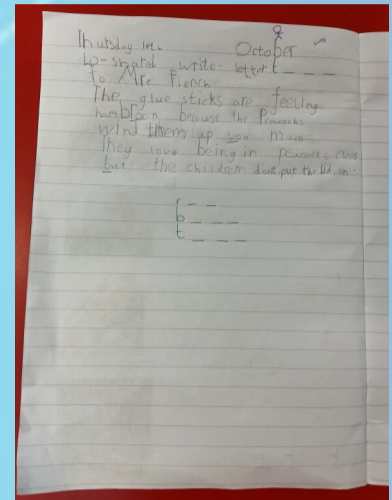 Thursday 10th October
Lo-shared write- letter t _ _ _
to Mrs French
The glue sticks are feeling
because the Peacocks
wind them up too much
They love being in peacocks class
but the children dont put the lids on.
r _ _
b _ _ _
t _ _ _